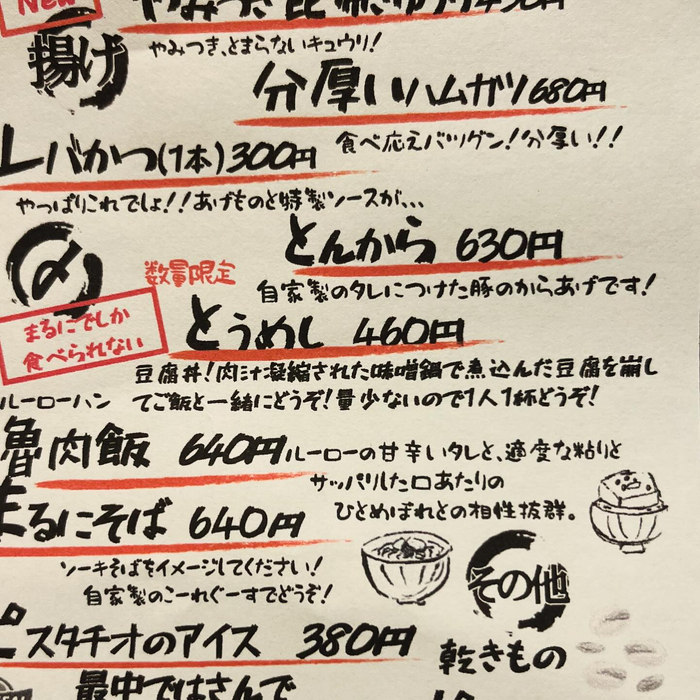 New
やみつき昆布きゅうり450円
やみつき、とまらないキュウリ!
揚げ
分厚いハムカツ680円
食べ応えバツグン!分厚い!!
レバかつ(1本)300円
やっぱりこれでしょ!!あげものと特製ソースが...
〆
とんから 630円
自家製のタレにつけた豚のからあげです!
数量限定
まるにでしか
食べられない
とうめし 460円
豆腐丼!肉汁凝縮された味噌鍋で煮込んだ豆腐を崩し
てご飯と一緒にどうぞ!量少ないので1人1杯どうぞ!
ルーローハン
魯肉飯 640円
ルーローの甘辛いタレと、適度な粘りと
サッパリした口あたりの
ひとめぼれとの相性抜群。
まるにそば 640円
ソーキそばをイメージしてください!
自家製のこーれぐーすでどうぞ!
その他
ピスタチオのアイス 380円
最中ではさんで
乾きもの